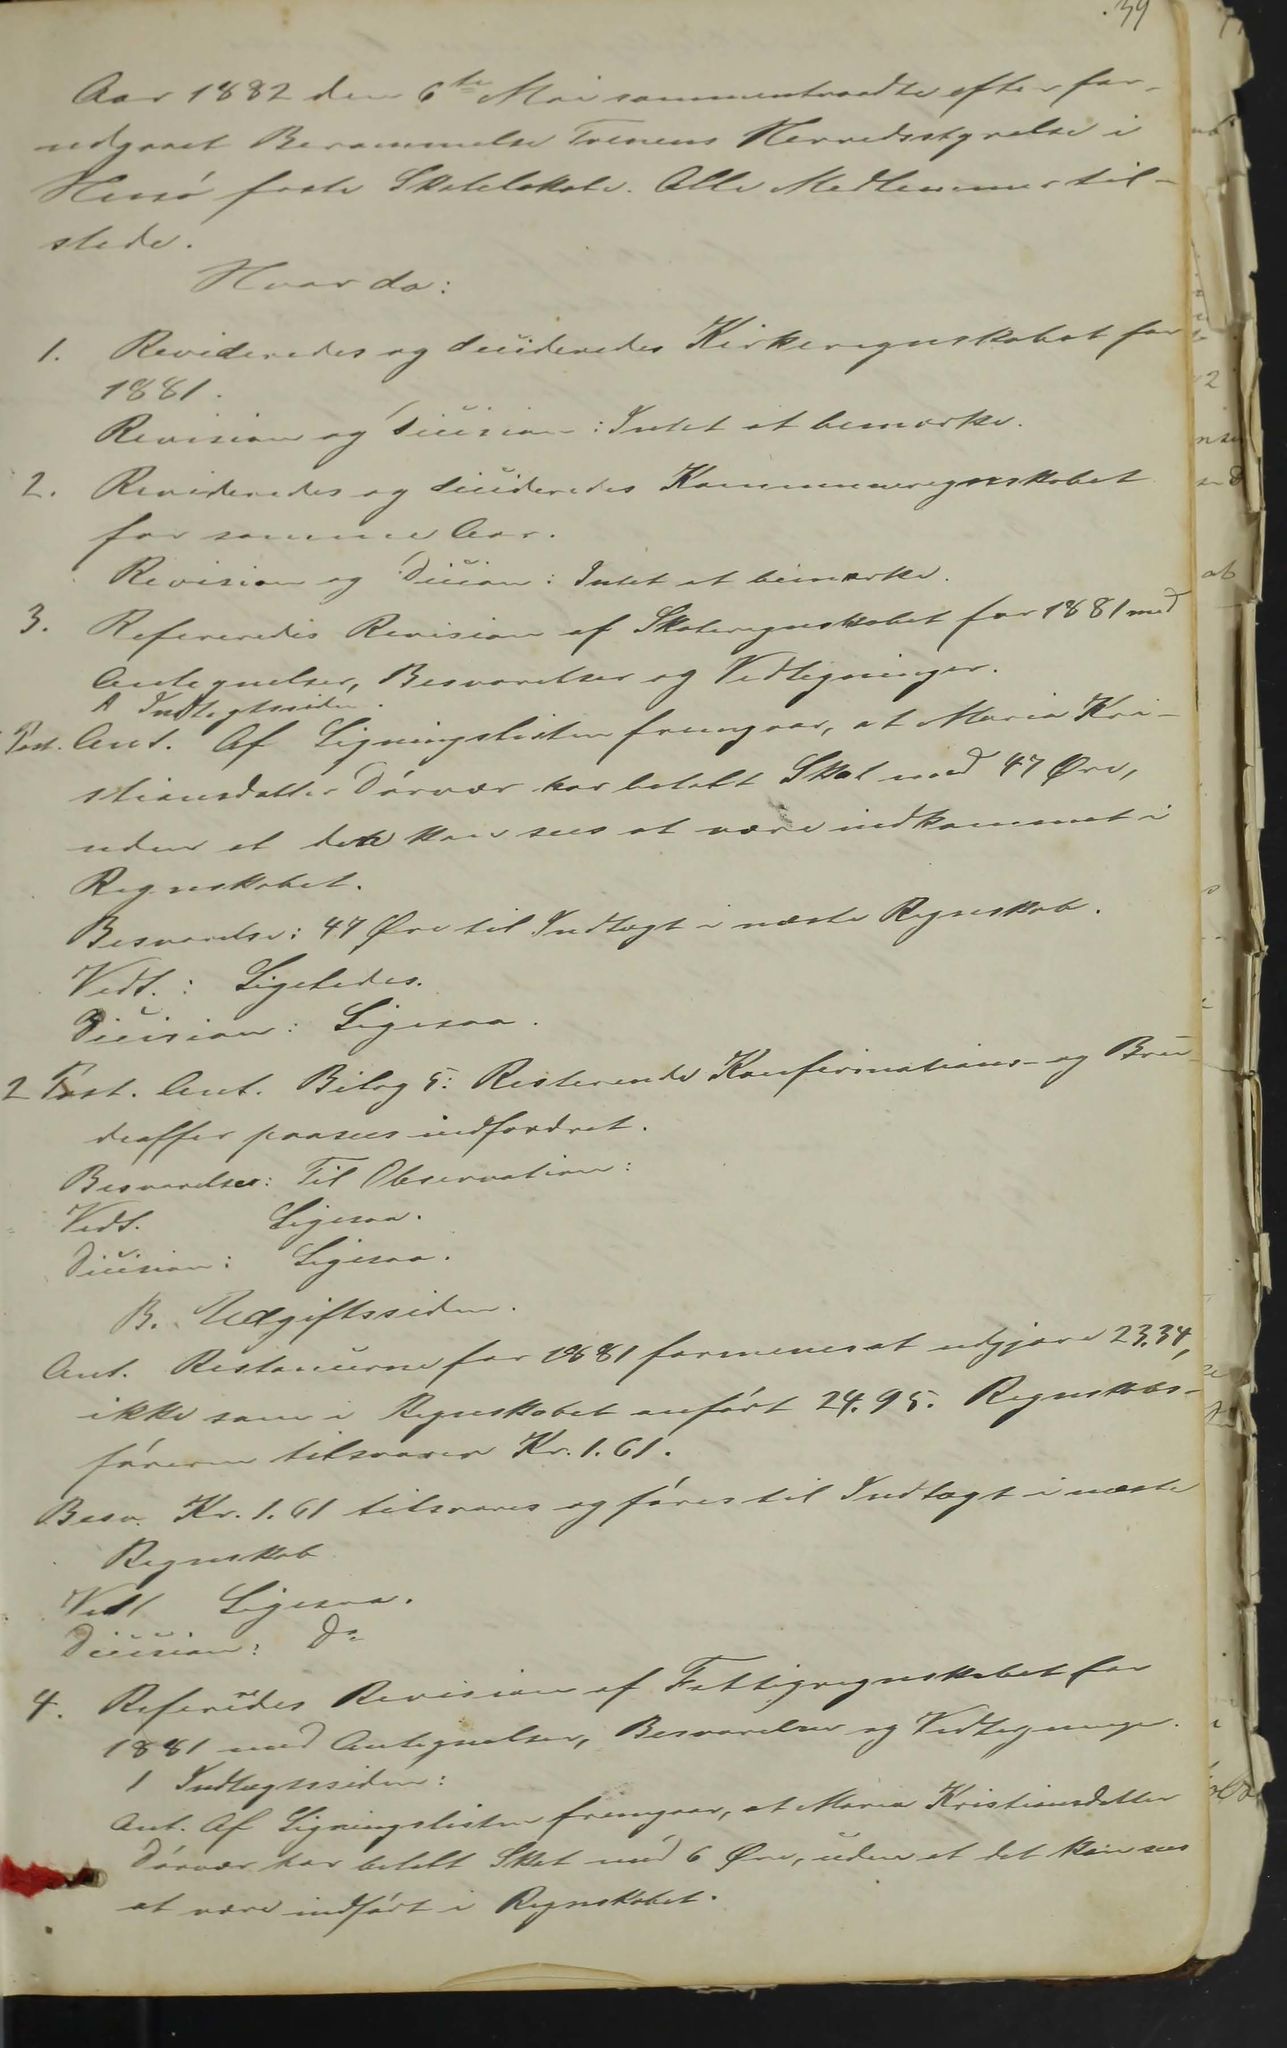 39
Aar 1882 den 6te Mai sammentraadte efter for-
udgaaet Berammelse Trænens Herredsstyrelse i
Husø faste Skolelokale. Alle Medlemmer til-
stede.
Hvor da:
1. Revideredes og decideredes Kirkeregnskabet for
1881.
Revision og Decision: Intet at bemærke.
2. Revideredes og decideredes Kommuneregnskabet
for samme Aar.
Revision og Decision: Intet at bemærke.
3. Refereredes Revision af Skoleregnskabet for 1881 med
Antegnelser, Besvarelser og Vedtegninger.
A Indtægtssiden.
Post. Ant. Af Ligningslisten fremgaar, at Maria Kri-
stiansdatter Dørvær har betalt Skat med 47 Øre,
uden at dette kan sees at være indkommet i
Regnskabet.
Besvarelse: 47 Øre til Indtægt i næste Regnskab.
Vedt.: Ligeledes.
Decision: Ligesaa.
2 Post. Ant. Bilag 5: Resterende Konfirmations- og Bru-
deoffer paasees indfordret.
Besvarelse: Til Observation:
Vedt. Ligesaa.
Decision: Ligesaa.
B. Udgiftssiden.
Ant. Restancerne for 1881 formenes at udgjøre 23.34,
ikke som i Regnskabet anført 24.95. Regnskabs-
føreren tilsvarer Kr. 1.61.
Besv. Kr. 1.61 tilsvares og føres til Indtægt i næste
Regnskab
Vedt Ligesaa.
Decision: Do
4. Refereredes Revision af Fattigregnskabet for
1881 med Antegnelser, Besvarelser og Vedtegninger.
1 Indtægtssiden:
Ant. Af Ligningslisten fremgaar, at Maria Kristiansdatter
Dørvær har betalt Skat med 6 Øre, uden at det kan sees
at være indført i Regnskabet.